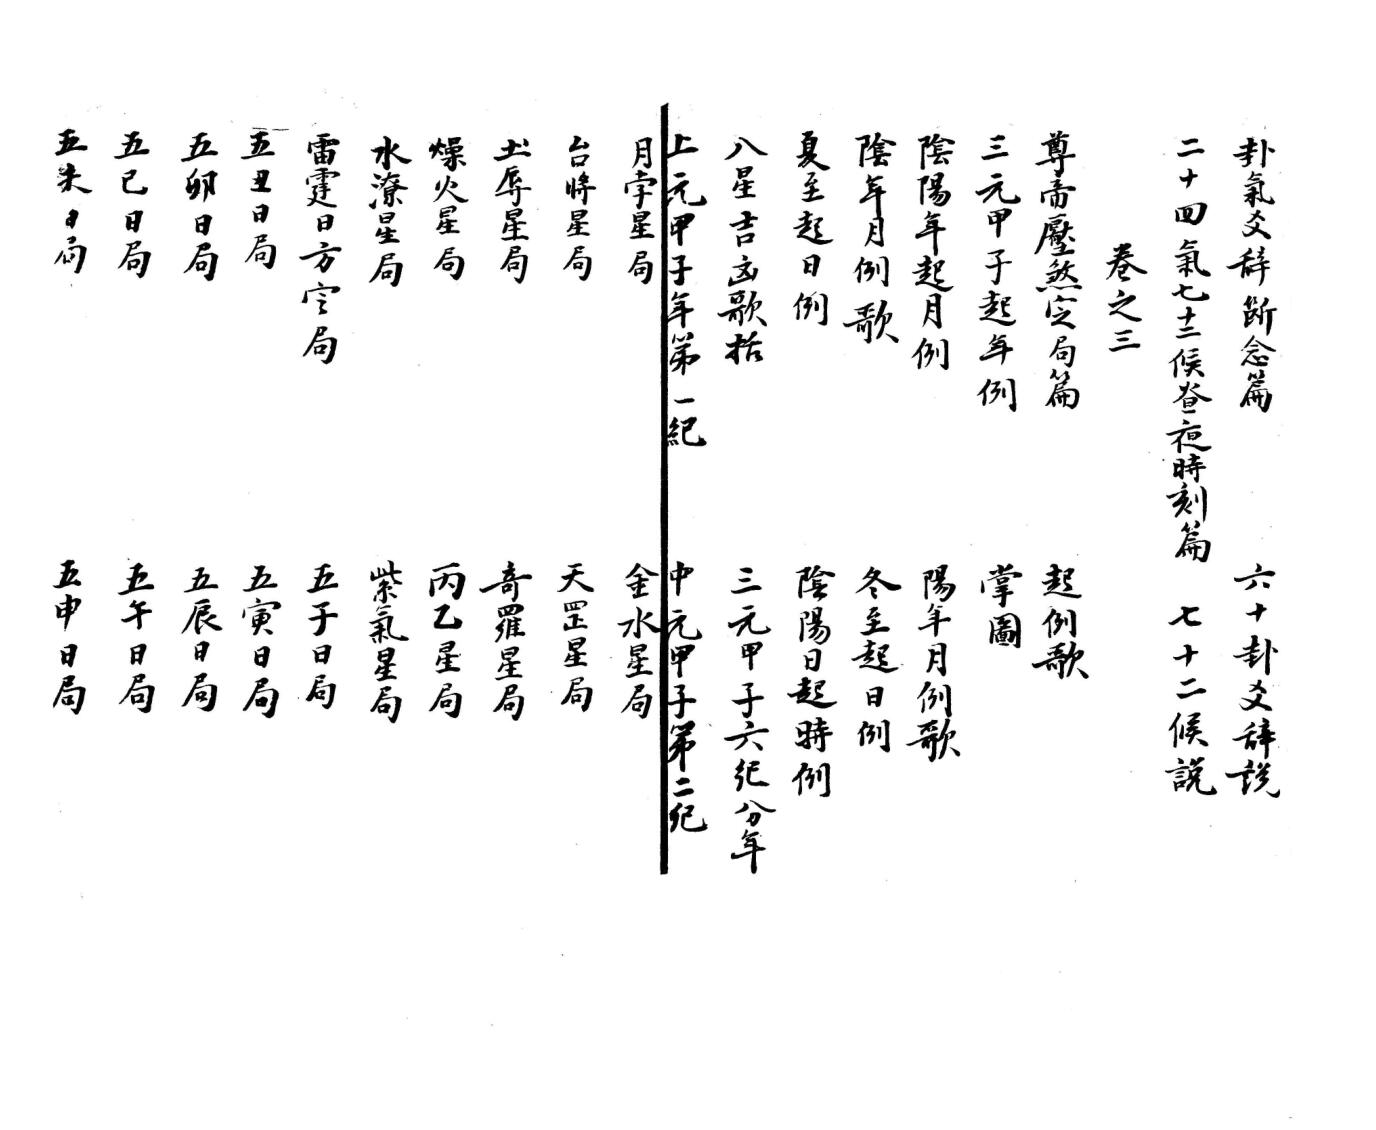 卦氣爻辭斷念篇　六十卦爻辭說
二十四氣七十二候晝夜時刻篇　七十二候說
卷之三
尊帝壓煞定局篇　起例歌
三元甲子起年例　掌圖
陰陽年起月例　陽年月例歌
陰年月例歌　冬至起日例
夏至起日例　陰陽日起時例
八星吉凶歌括　三元甲子六紀分年
上元甲子年第一紀　中元甲子第二紀
月孛星局　金水星局
台將星局　天罡星局
土辱星局　奇羅星局
燥火星局　丙乙星局
水潦星局　紫氣星局
雷霆日方定局　五子日局
五丑日局　五寅日局
五卯日局　五辰日局
五巳日局　五午日局
五未日局　五申日局